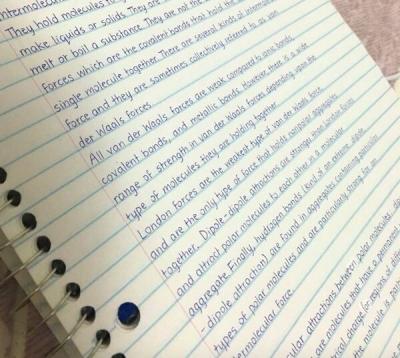 They hold molecules to
make liquids or solids. They are
melt or boil a substance. They are not the
Forces which are the covalent bonds that hold the
single molecule together. There are several kinds of intermol
force and they are sometimes collectively referred to as van
der Waals forces
All van der Waals forces are weak compared to ionic bonds,
covalent bonds, and metallic bonds. However, there is a wide
range of strength in van der Waals forces depending upon the
type of molecules they are holding together
London forces are the weakest type of van der Waals force
and are the only type of force that hold nonpolar aggregates
together. Dipole-dipole attractions are stronger than London forces
and attract polar molecules to each other in a molecular
aggregate. Finally, hydrogen bonds (kind of an extreme dipole
-dipole attraction) are found in aggregates containing particular
types of polar molecules and are particularly strong for an
termolecular force.
ular attractions between polar molecules
are molecules that have a permanent
ical charge (or regions of differ
the molecule is